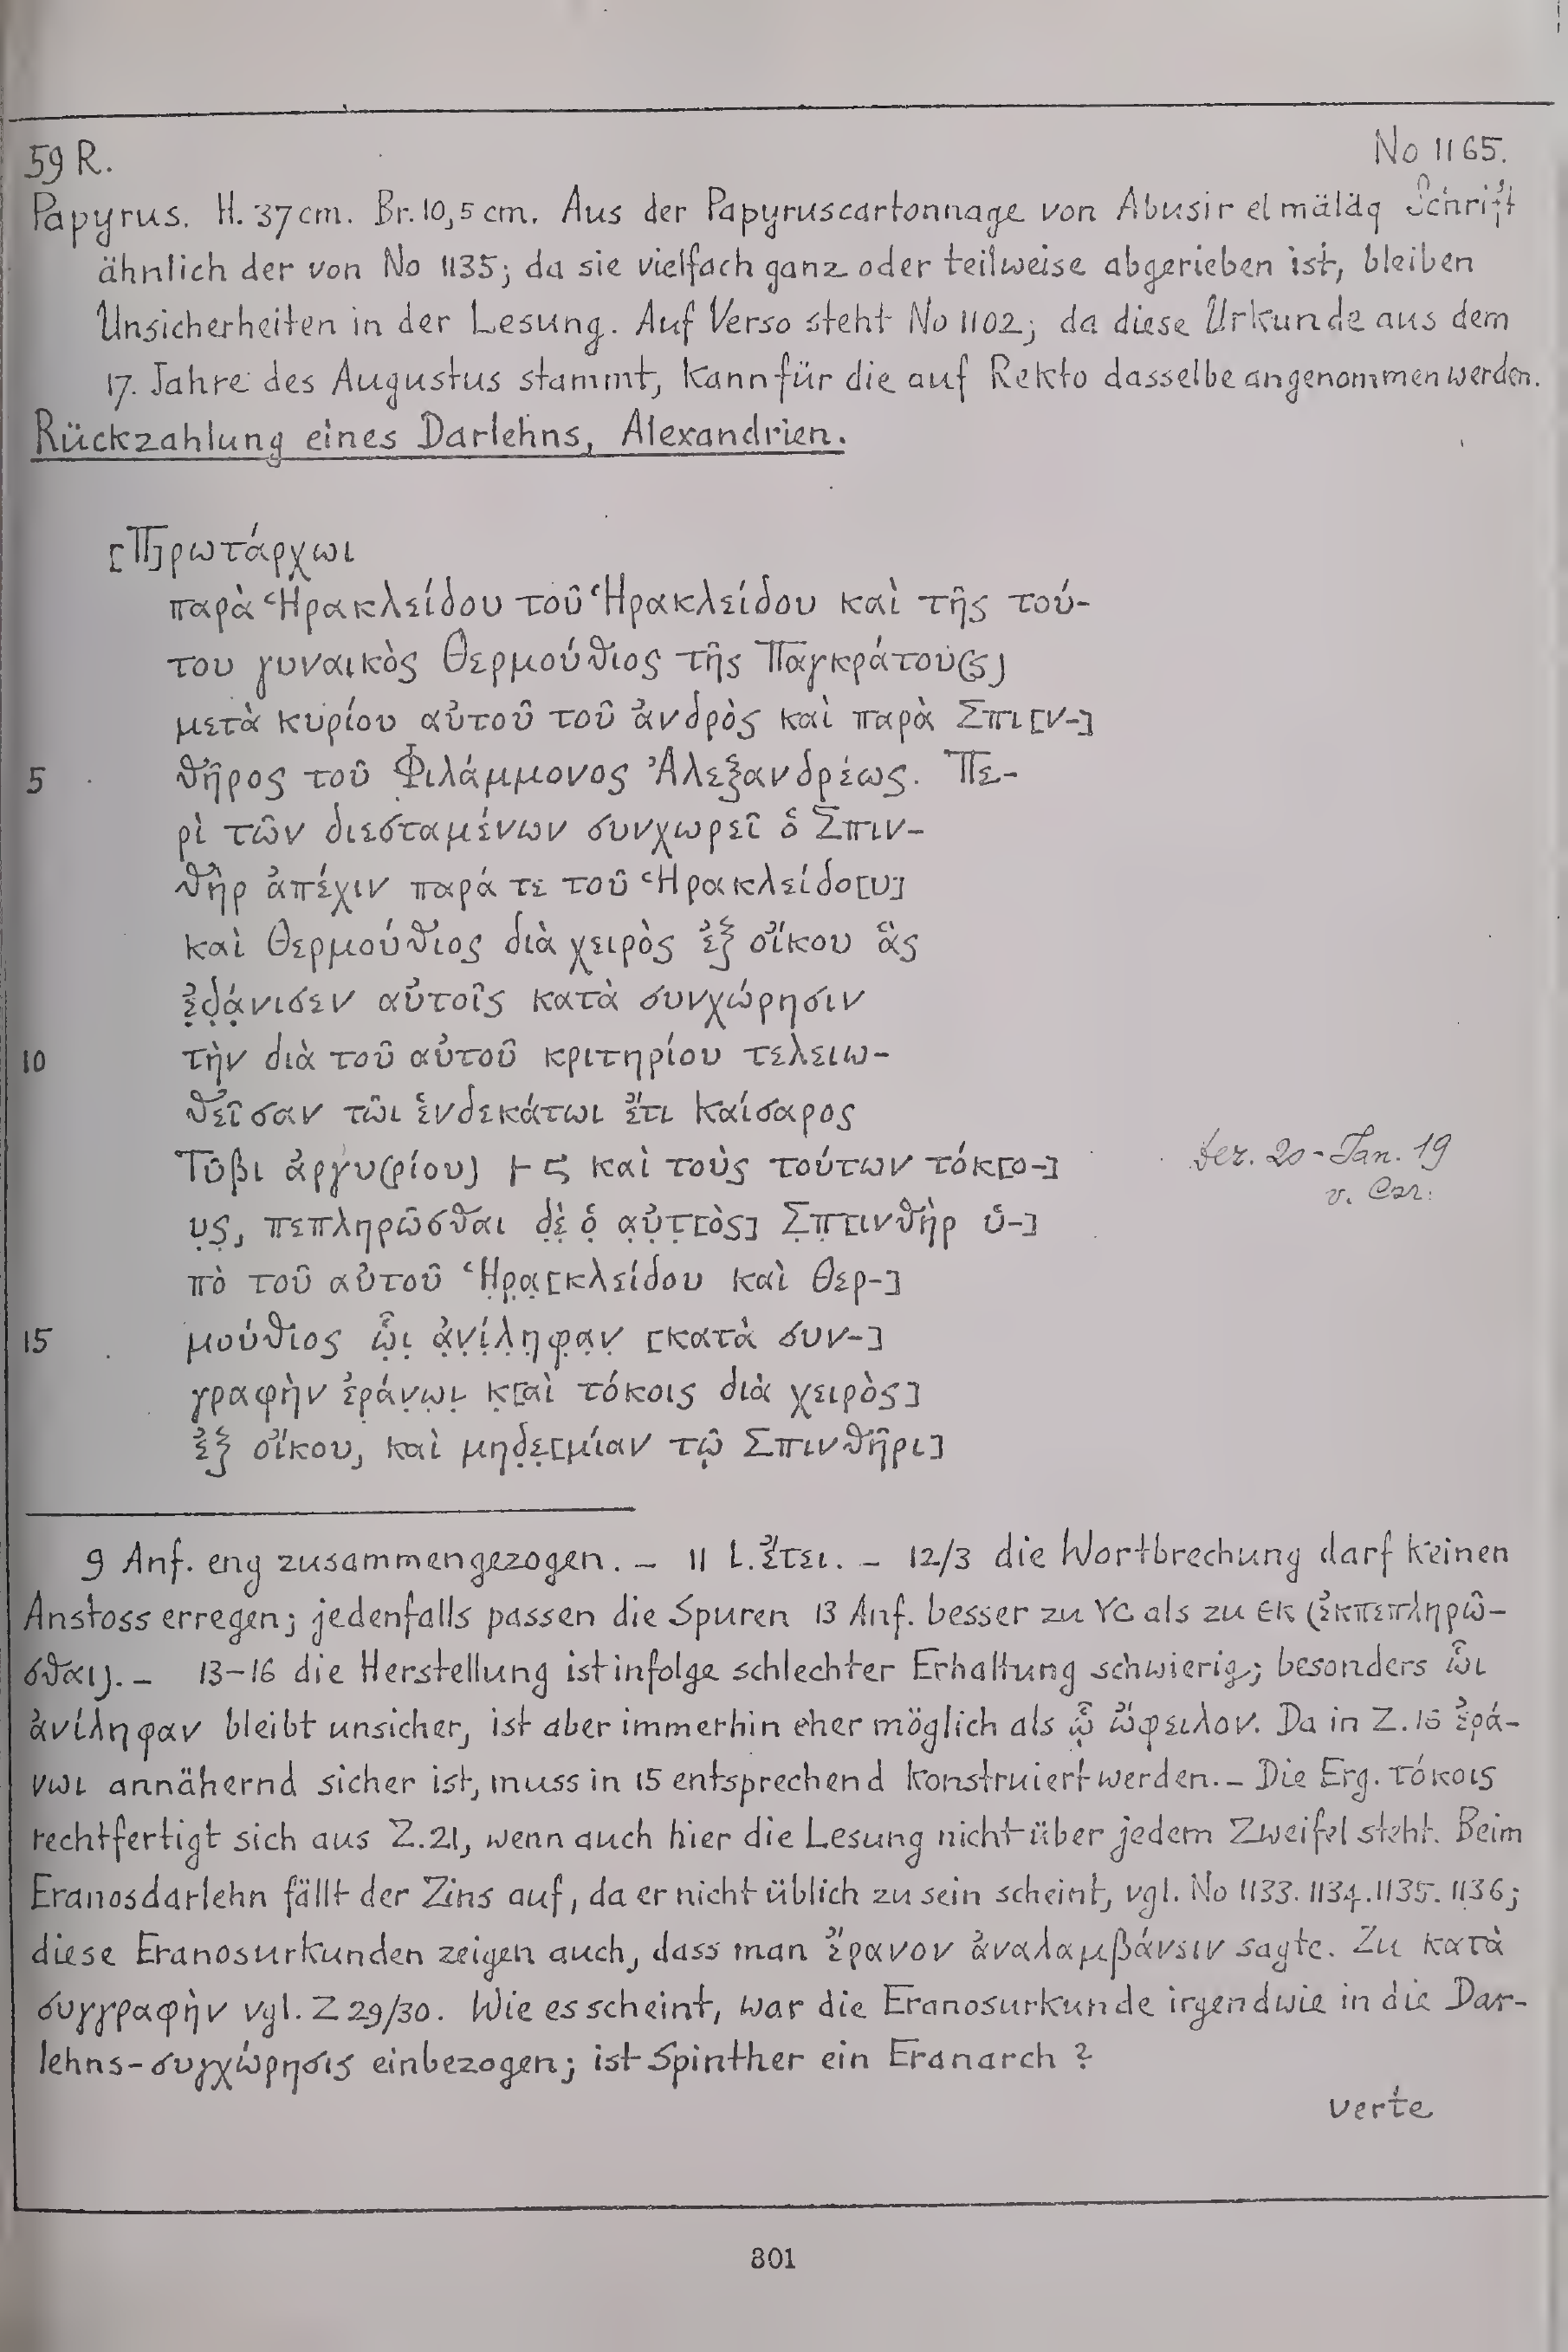 59 R.
No 1165.
Papyrus. H. 37 cm. Br. 10,5 cm. Aus der Papyruscartonnage von Abusir el mäläq Schrift
ähnlich der von No 1135; da sie vielfach ganz oder teilweise abgerieben ist, bleiben
Unsicherheiten in der Lesung. Auf Verso steht No 1102; da diese Urkunde aus dem
17. Jahre des Augustus stammt, kann für die auf Rekto dasselbe angenommen werden.
Rückzahlung eines Darlehns, Alexandrien.
[Π]ρωτάρχωι
παρὰ Ἡρακλείδου τοῦ Ἡρακλείδου καὶ τῆς τού-
του γυναικὸς Θερμούθιος τῆς Παγκράτου(ς)
μετὰ κυρίου αὐτοῦ τοῦ ἀνδρὸς καὶ παρὰ Σπι[ν-]
5 θῆρος τοῦ Φιλάμμονος Ἀλεξανδρέως. Πε-
ρὶ τῶν διεσταμένων συνχωρεῖ ὁ Σπιν-
θὴρ ἀπέχιν παρά τε τοῦ Ἡρακλείδο[υ]
καὶ Θερμούθιος διὰ χειρὸς ἐξ οἴκου ἃς
ἐ̣δ̣ά̣νισεν αὐτοῖς κατὰ συνχώρησιν
10 τὴν διὰ τοῦ αὐτοῦ κριτηρίου τελειω-
θεῖσαν τῶι ἑνδεκάτωι ἔτι Καίσαρος
Τῦβι ἀργυ(ρίου) ⊢ ϛ καὶ τοὺς τούτων τόκ[ο-]
υ̣ς̣, πεπληρῶσθαι δ̣ὲ̣ ὁ̣ α̣ὐ̣τ̣[ὸς] Σ̣π̣[ινθὴρ ὑ-]
πὸ τοῦ αὐτοῦ Ἡ̣ρ̣α̣[κλείδου καὶ Θερ-]
15 μούθιος ὧ̣ι̣ ἀ̣ν̣ί̣λ̣η̣φ̣α̣ν̣ [κατὰ συν-]
γραφὴν ἐ̣ρ̣ά̣ν̣ω̣ι̣ κ̣[αὶ τόκοις διὰ χειρὸς]
ἐξ οἴκου, καὶ μηδ̣ε̣[μίαν τῷ Σπινθῆρι]
Dez. 20 - Jan. 19
v. Chr.
9 Anf. eng zusammengezogen. – 11 l. ἔτει. – 12/3 die Wortbrechung darf keinen
Anstoss erregen; jedenfalls passen die Spuren 13 Anf. besser zu ΥϹ als zu ЄΚ (ἐκπεπληρῶ-
σθαι). – 13–16 die Herstellung ist infolge schlechter Erhaltung schwierig; besonders ὧι
ἀνίληφαν bleibt unsicher, ist aber immerhin eher möglich als ᾧ ὤφειλον. Da in Z. 16 ἐρά-
νωι annähernd sicher ist, muss in 15 entsprechend konstruiert werden. – Die Erg. τόκοις
rechtfertigt sich aus Z. 21, wenn auch hier die Lesung nicht über jedem Zweifel steht. Beim
Eranosdarlehn fällt der Zins auf, da er nicht üblich zu sein scheint, vgl. No 1133. 1134. 1135. 1136;
diese Eranosurkunden zeigen auch, dass man ἔρανον ἀναλαμβάνειν sagte. Zu κατὰ
συγγραφὴν vgl. Z 29/30. Wie es scheint, war die Eranosurkunde irgendwie in die Dar-
lehns-συγχώρησις einbezogen; ist Spinther ein Eranarch?
verte
301